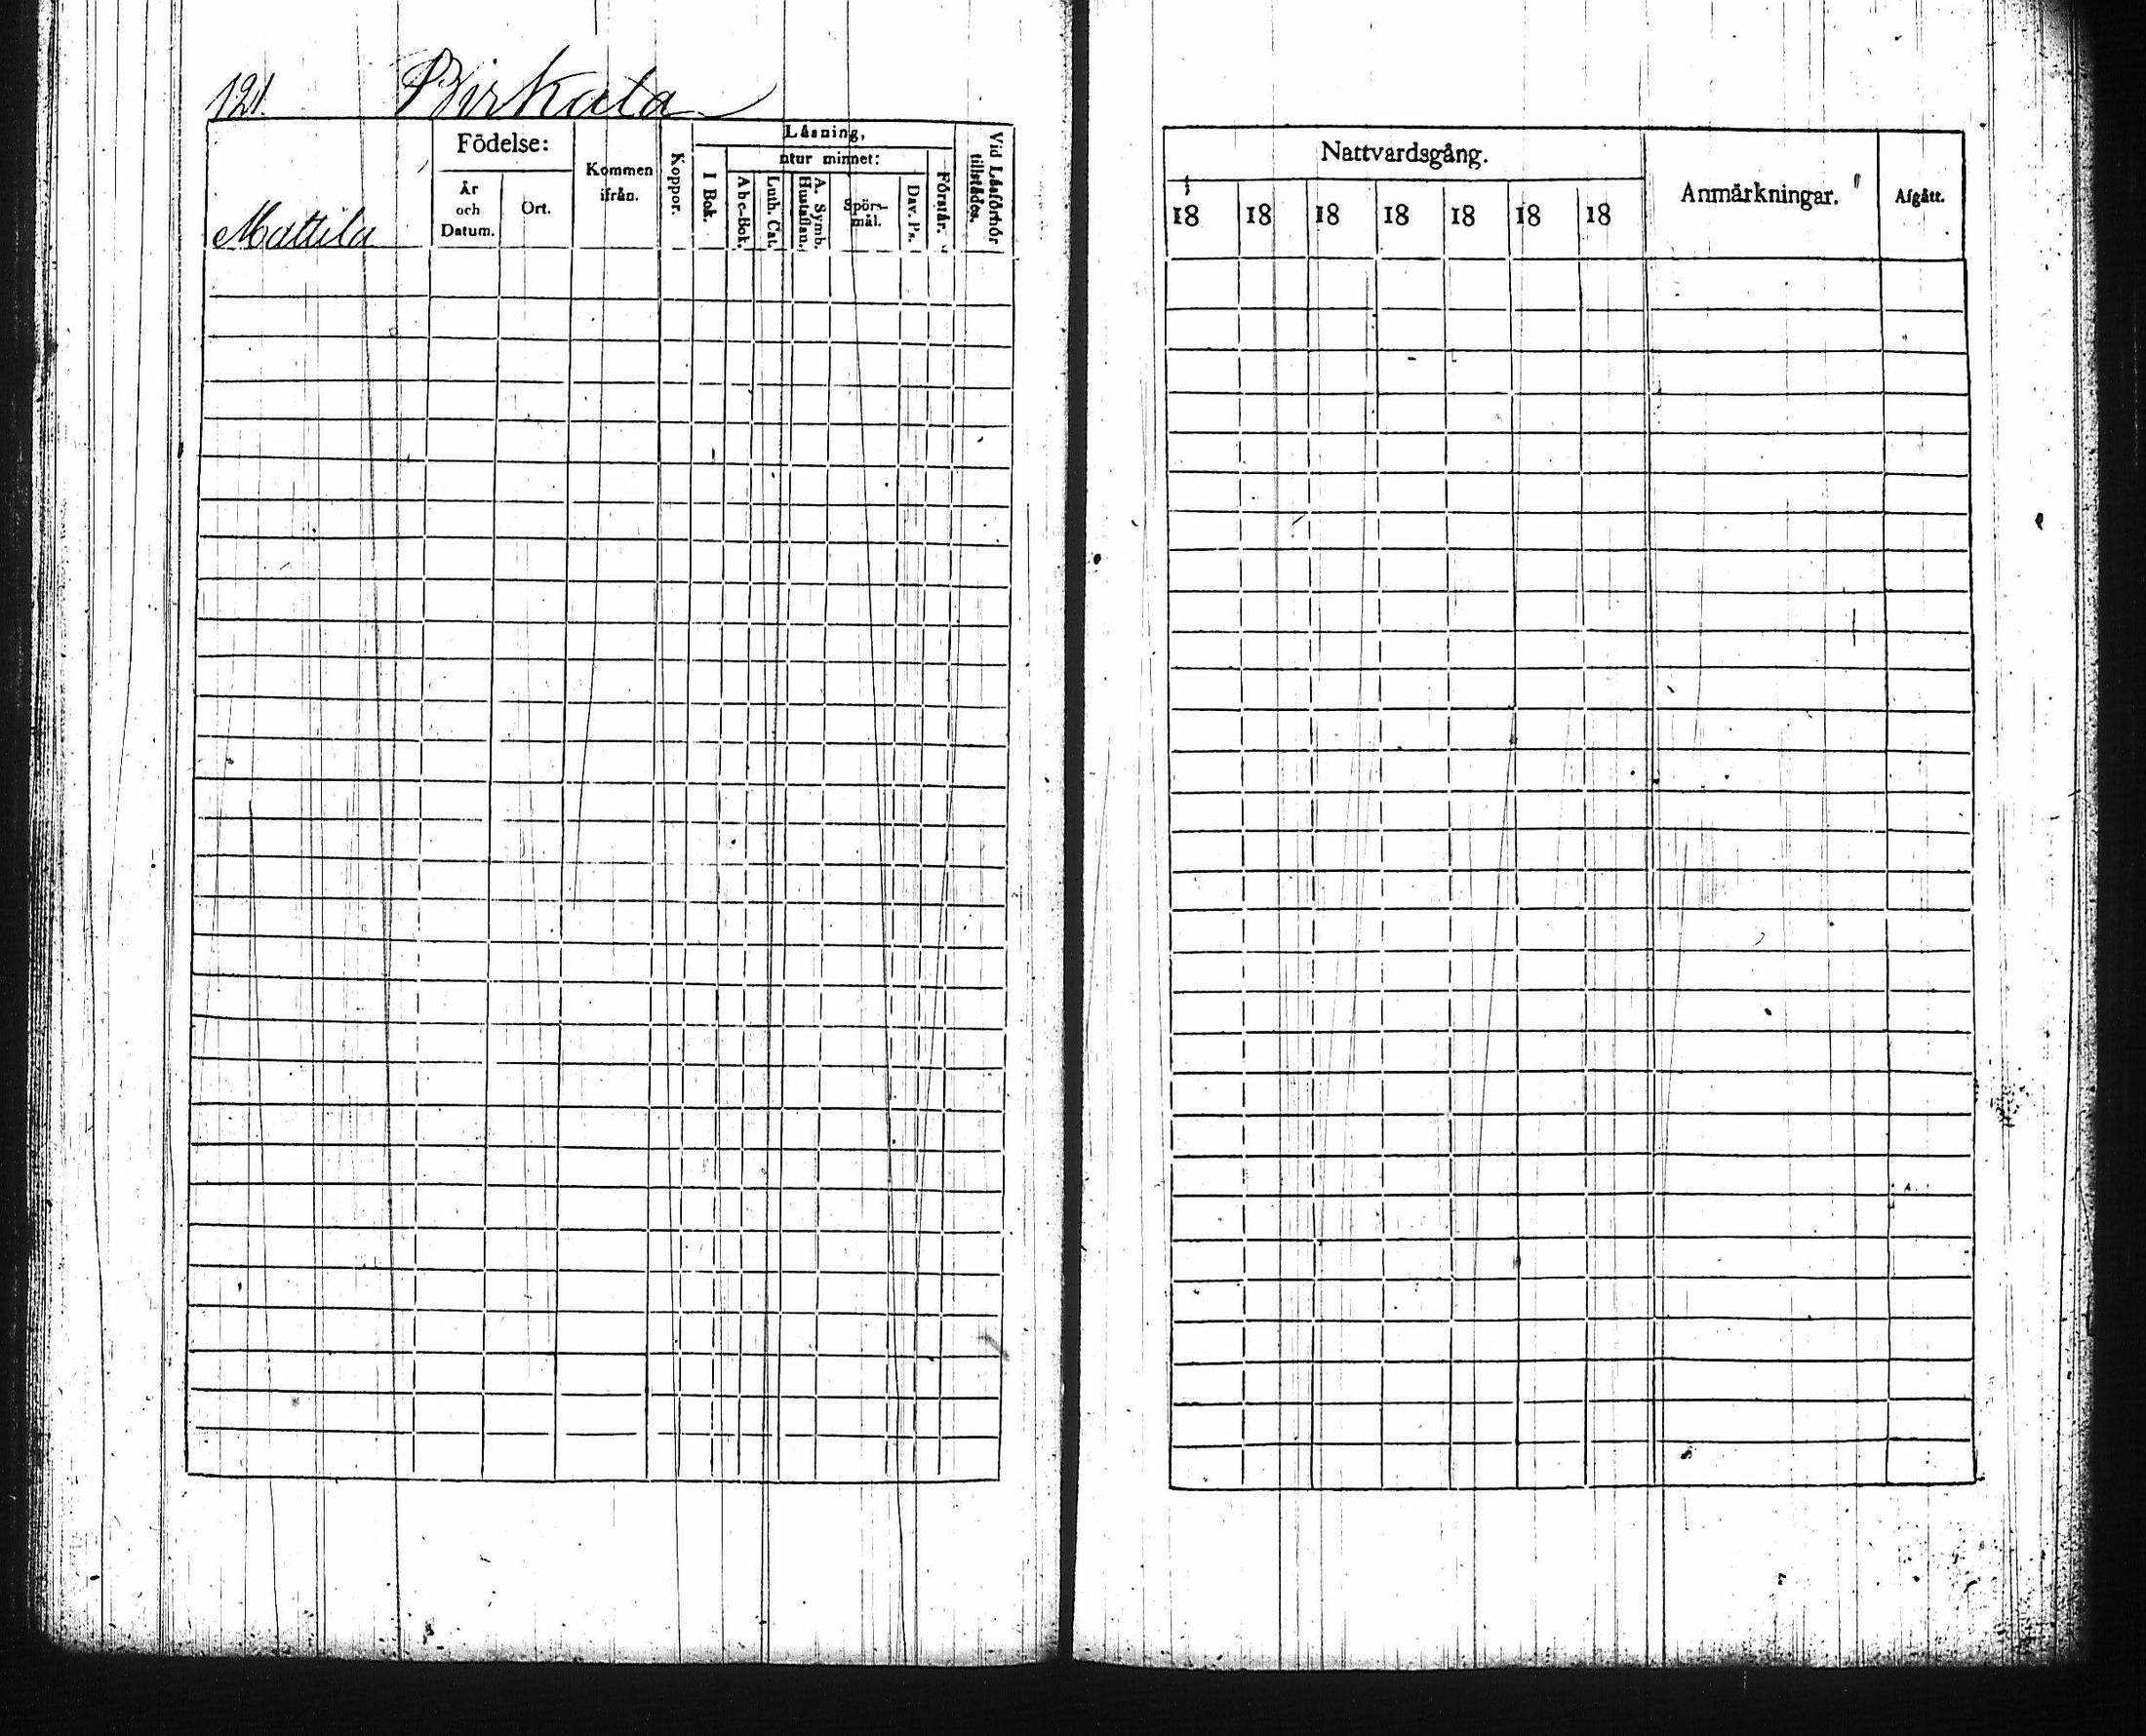 121. Birkala
Mattila
Födelse:
År och Datum.
Ort.
Kommen ifrån.
Koppor.
Läsning,
utur minnet:
I Bok.
Abc-Bok.
Luth. Cat.
A. Symb. Hustaflan.
Spörs-mål.
Dav. Ps.
Förstår.
Vid Läsförhör tillstädes.
Nattvardsgång.
18 18 18 18 18 18 18
Anmärkningar.
Afgått.